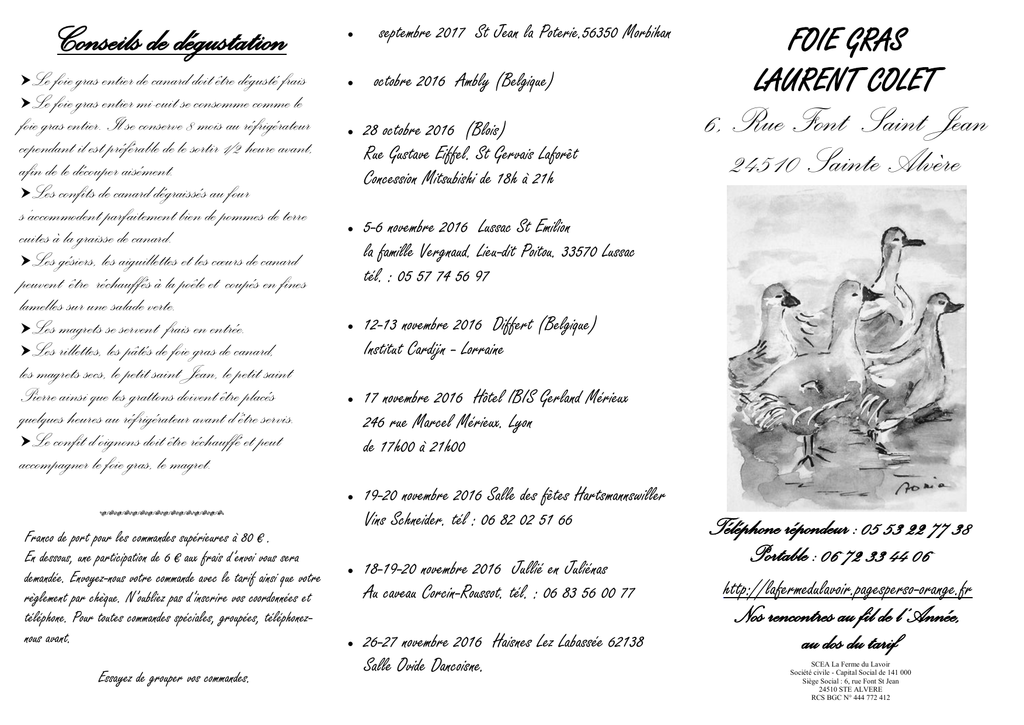 Conseils de dégustation
➤ Le foie gras entier de canard doit être dégusté frais
➤ Le foie gras entier mi-cuit se consomme comme le
foie gras entier. Il se conserve 8 mois au réfrigérateur
cependant il est préférable de le sortir 1/2 heure avant,
afin de le découper aisément.
➤ Les confits de canard dégraissés au four
s'accommodent parfaitement bien de pommes de terre
cuites à la graisse de canard.
➤ Les gésiers, les aiguillettes et les cœurs de canard
peuvent être réchauffés à la poêle et coupés en fines
lamelles sur une salade verte.
➤ Les magrets se servent frais en entrée.
➤ Les rillettes, les pâtés de foie gras de canard,
les magrets secs, le petit saint Jean, le petit saint
Pierre ainsi que les grattons doivent être placés
quelques heures au réfrigérateur avant d'être servis.
➤ Le confit d'oignons doit être réchauffé et peut
accompagner le foie gras, le magret.
Franco de port pour les commandes supérieures à 80 € .
En dessous, une participation de 6 € aux frais d'envoi vous sera
demandée. Envoyez-nous votre commande avec le tarif ainsi que votre
règlement par chèque. N'oubliez pas d'inscrire vos coordonnées et
téléphone. Pour toutes commandes spéciales, groupées, téléphonez-
nous avant.
Essayez de grouper vos commandes.
• septembre 2017 St Jean la Poterie.56350 Morbihan
• octobre 2016 Ambly (Belgique)
• 28 octobre 2016 (Blois)
Rue Gustave Eiffel. St Gervais Laforêt
Concession Mitsubishi de 18h à 21h
• 5-6 novembre 2016 Lussac St Emilion
la famille Vergnaud. Lieu-dit Poitou. 33570 Lussac
tél. : 05 57 74 56 97
• 12-13 novembre 2016 Differt (Belgique)
Institut Cardijn - Lorraine
• 17 novembre 2016 Hôtel IBIS Gerland Mérieux
246 rue Marcel Mérieux. Lyon
de 17h00 à 21h00
• 19-20 novembre 2016 Salle des fêtes Hartsmannswiller
Vins Schneider. tél ; 06 82 02 51 66
• 18-19-20 novembre 2016 Jullié en Juliénas
Au caveau Corcin-Roussot. tél. : 06 83 56 00 77
• 26-27 novembre 2016 Haisnes Lez Labassée 62138
Salle Ovide Dancoisne.
FOIE GRAS
LAURENT COLET
6, Rue Font Saint Jean
24510 Sainte Alvère
Téléphone répondeur : 05 53 22 77 38
Portable : 06 72 33 44 06
http://lafermedulavoir.pagesperso-orange.fr
Nos rencontres au fil de l'Année,
au dos du tarif
SCEA La Ferme du Lavoir
Société civile - Capital Social de 141 000
Siège Social : 6, rue Font St Jean
24510 STE ALVERE
RCS BGC N° 444 772 412